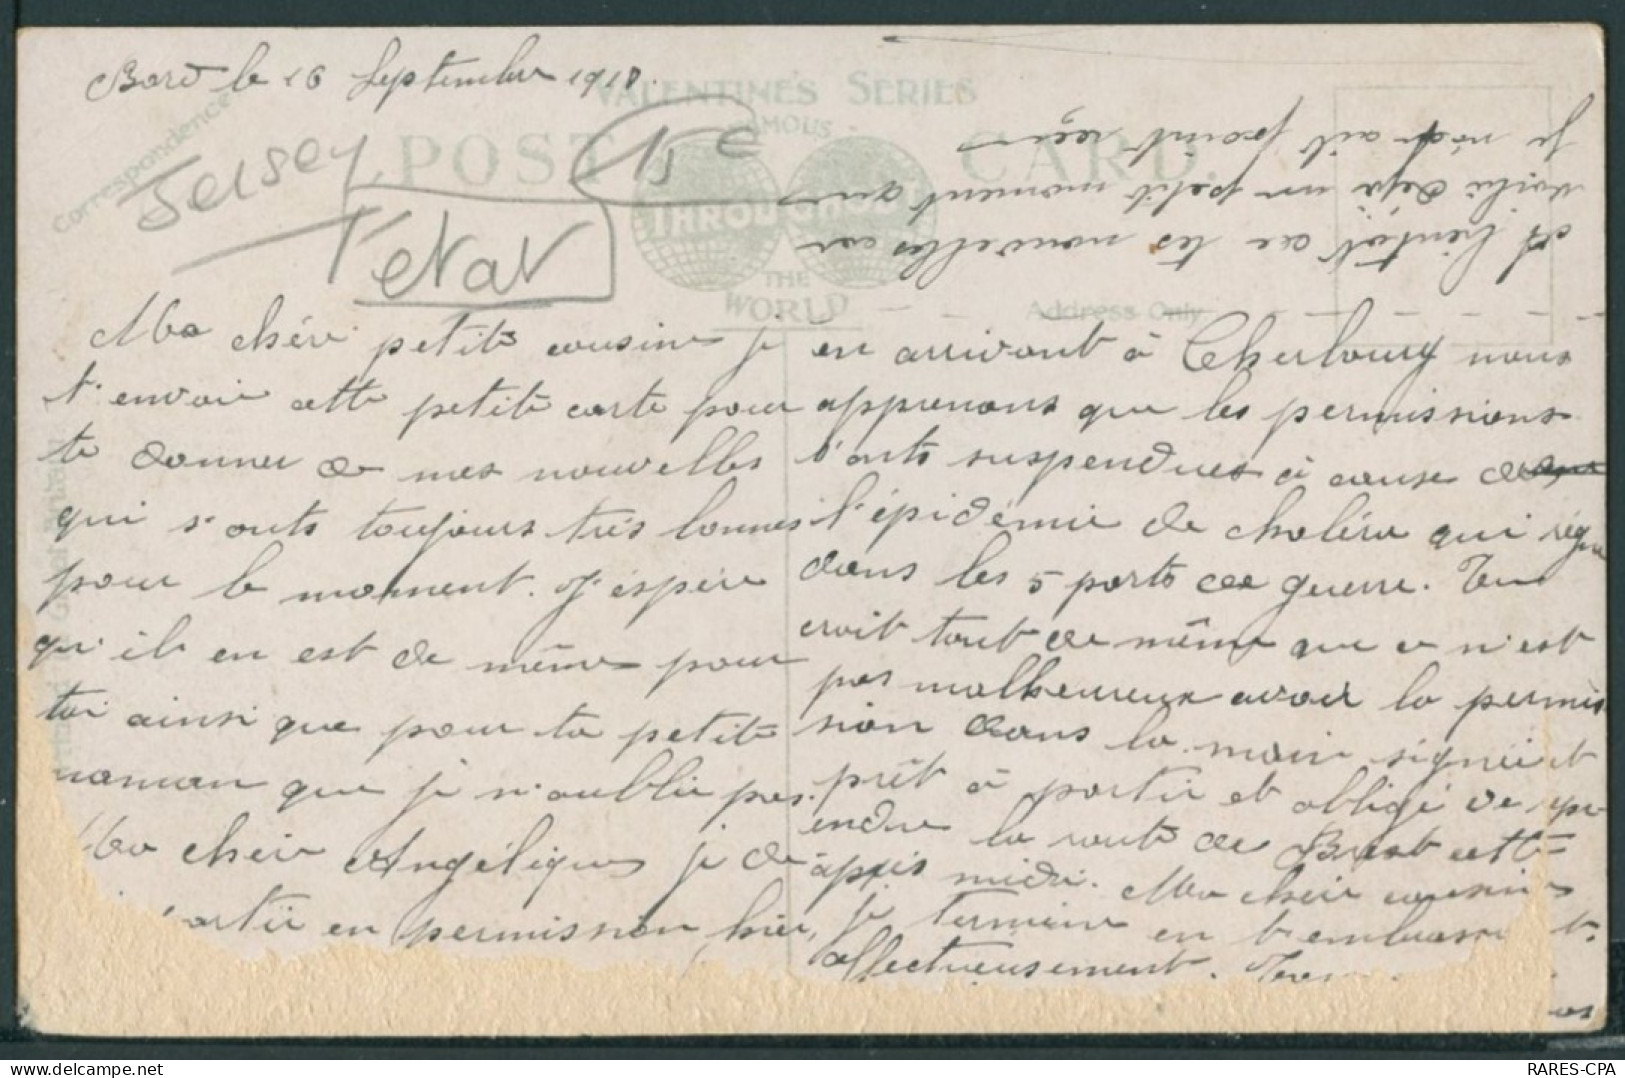 Bord le 16 Septembre 1918.
VALENTINE'S SERIES
Correspondence
POST CARD.
FAMOUS
THROUGHOUT
THE
WORLD
Address Only.
Jersey
15 c
Ma chéri petite cousine je
t'envoie cette petite carte pour
te donner de mes nouvelles
qui s'onts toujours très bonnes
pour le moment. J'espère
qu'il en est de même pour
toi ainsi que pour ta petite
maman que je n'oublie pas.
Ma chère Angélique je de
partir en permission hier,
en arrivant à Cherbourg nous
apprenons que les permissions
s'onts suspendues à cause de
l'épidémie de choléra qui règne
dans les 5 ports de guerre. Tu
croit tout de même que ce n'est
pas malheureux avoir la permis
sion dans la main signée et
prêt à partir et obligé de repr
endre la route de Brest cette
après midi. Ma chère cousine
je termine en t'embrassant
affectueusement.
A bientôt de tes nouvelles car
voilà déjà un petit moment que
je n'est ait point reçu
RARES-CPA